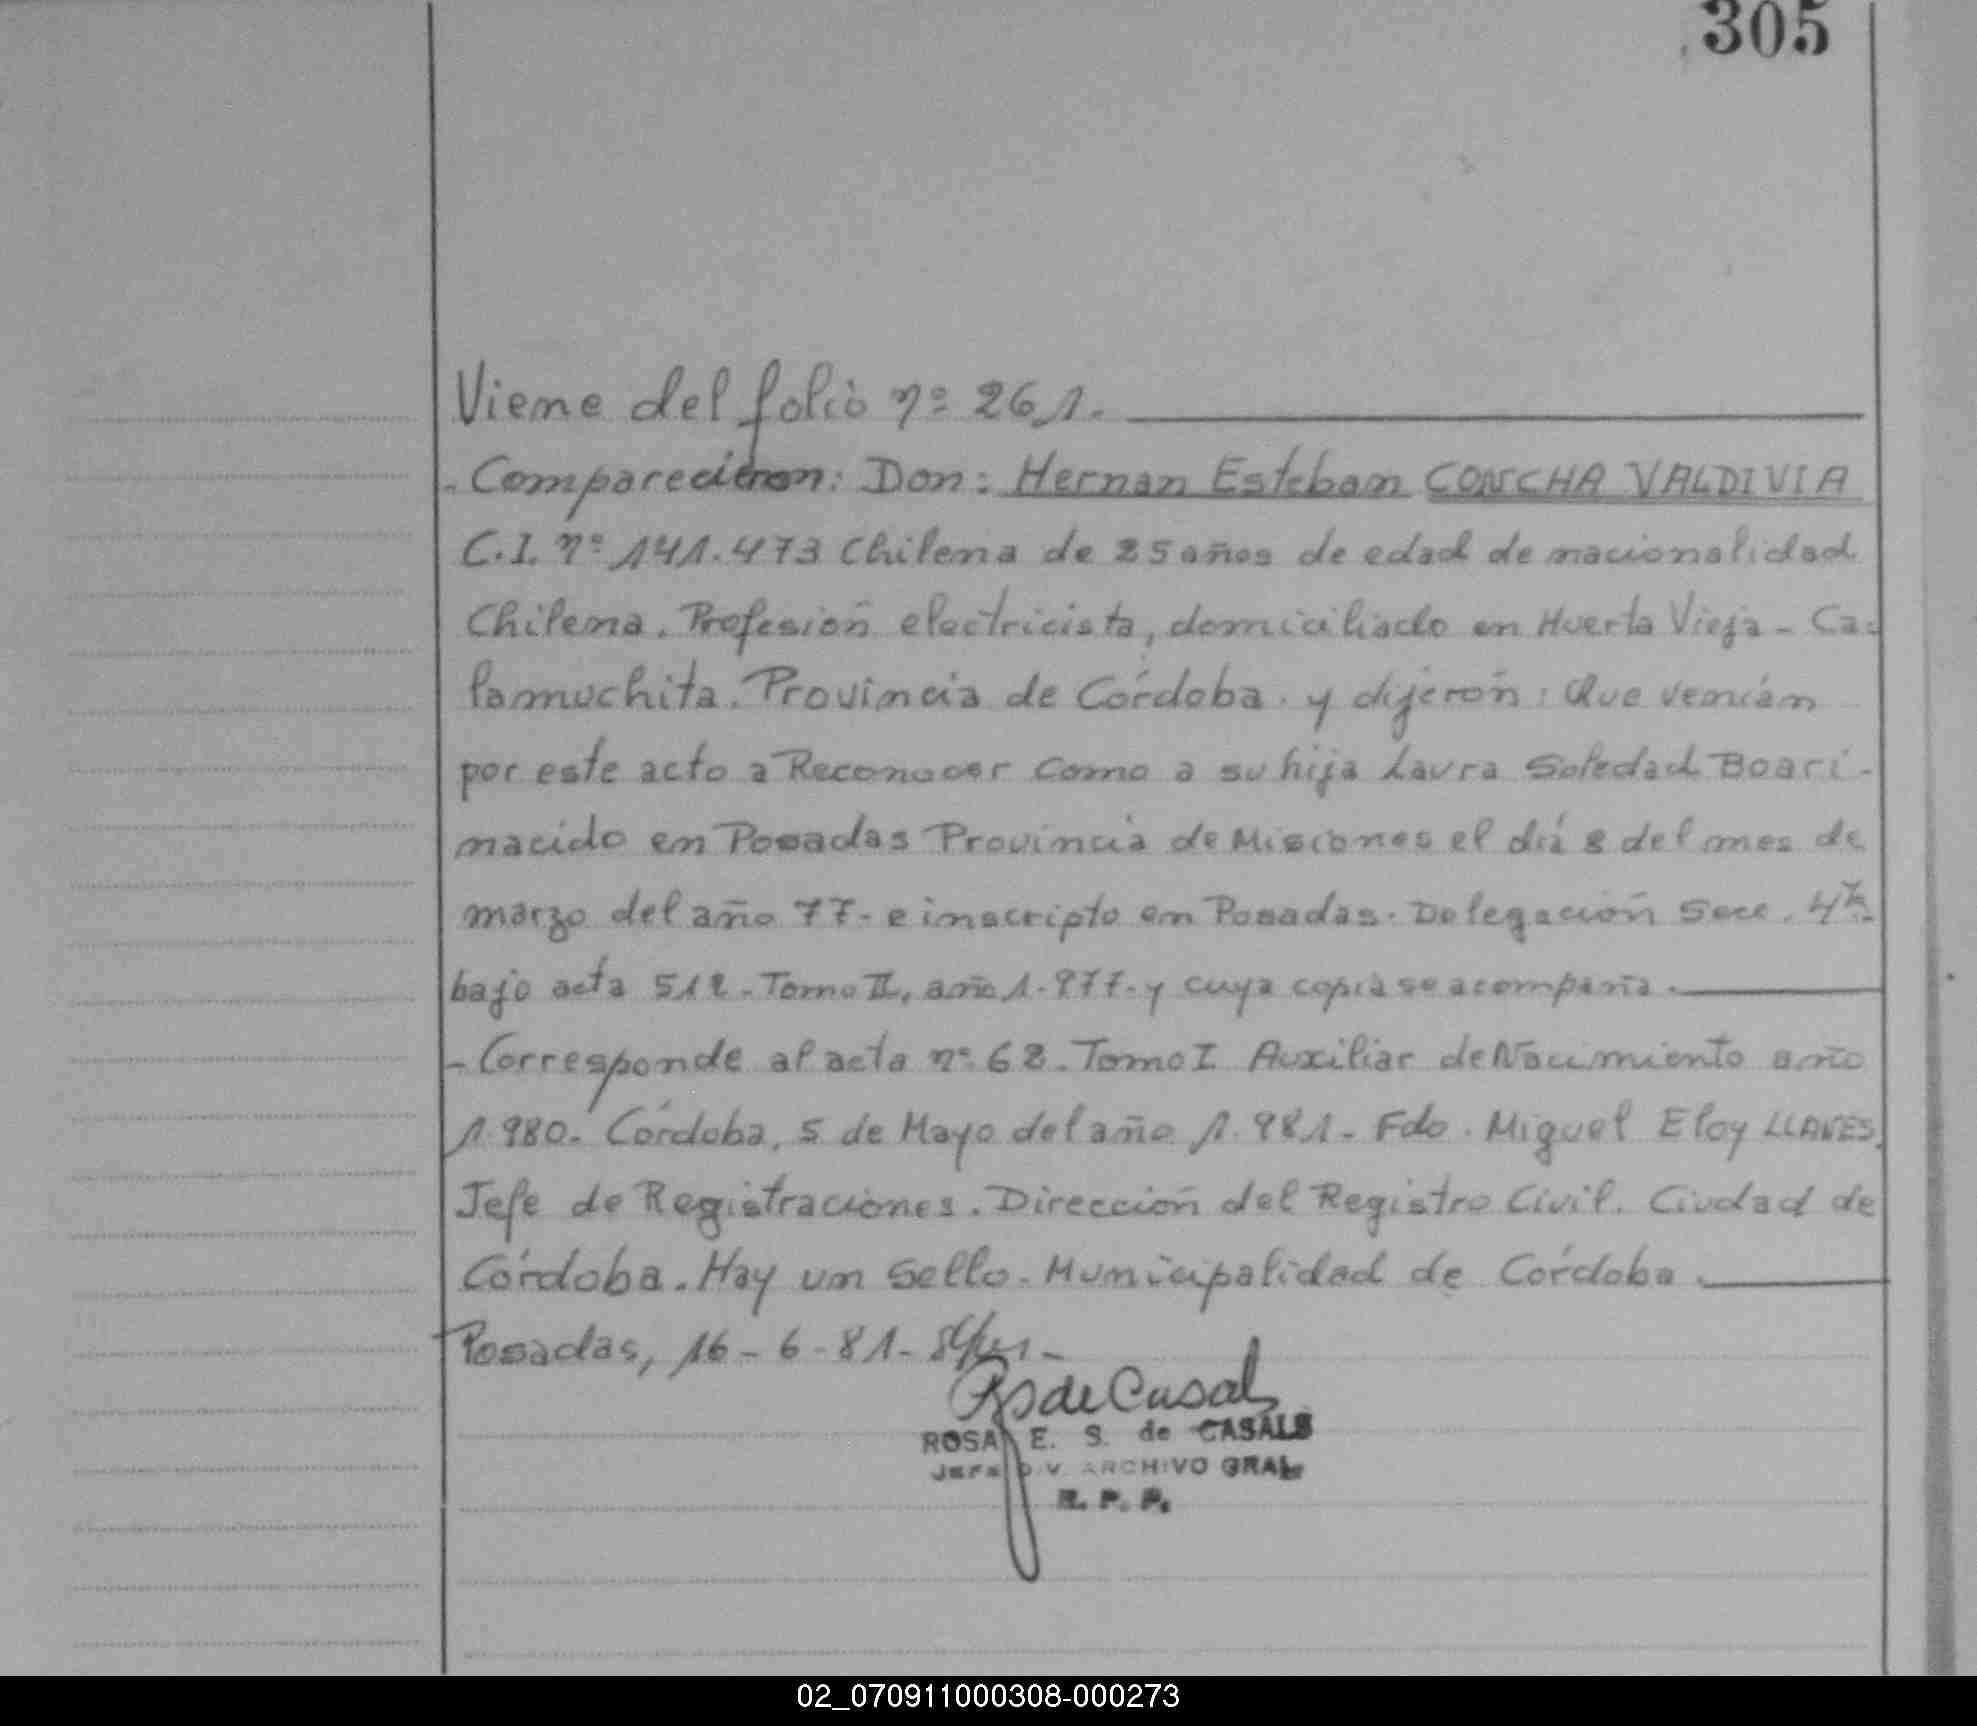 305
Viene del folio nº 261.
- Comparecieron: Don: Hernan Esteban CONCHA VALDIVIA
C.I. nº 141.473 Chilena de 25 años de edad de nacionalidad
Chilena. Profesión electricista, domiciliado en Huerta Vieja - Ca-
lamuchita. Provincia de Córdoba. y dijerón: Que venían
por este acto a Reconocer como a su hija Laura Soledad Boari-
nacido en Posadas Provincia de Misiones el día 8 del mes de
marzo del año 77- e inscripto en Posadas. Delegación Secc. 4ta.
bajo acta 512 - Tomo II, año 1.977- y cuya copia se acompaña.
- Corresponde al acta nº 62. Tomo I Auxiliar de Nacimiento año
1.980. Córdoba, 5 de Mayo del año 1.981- Fdo. Miguel Eloy LLANES.
Jefe de Registraciones. Dirección del Registro Civil. Ciudad de
Córdoba. Hay un Sello. Municipalidad de Córdoba.
Posadas, 16-6-81-
RS de Casals
ROSA E. S. de CASALS
JEFA DIV. ARCHIVO GRAL
R. P. P.
02_070911000308-000273